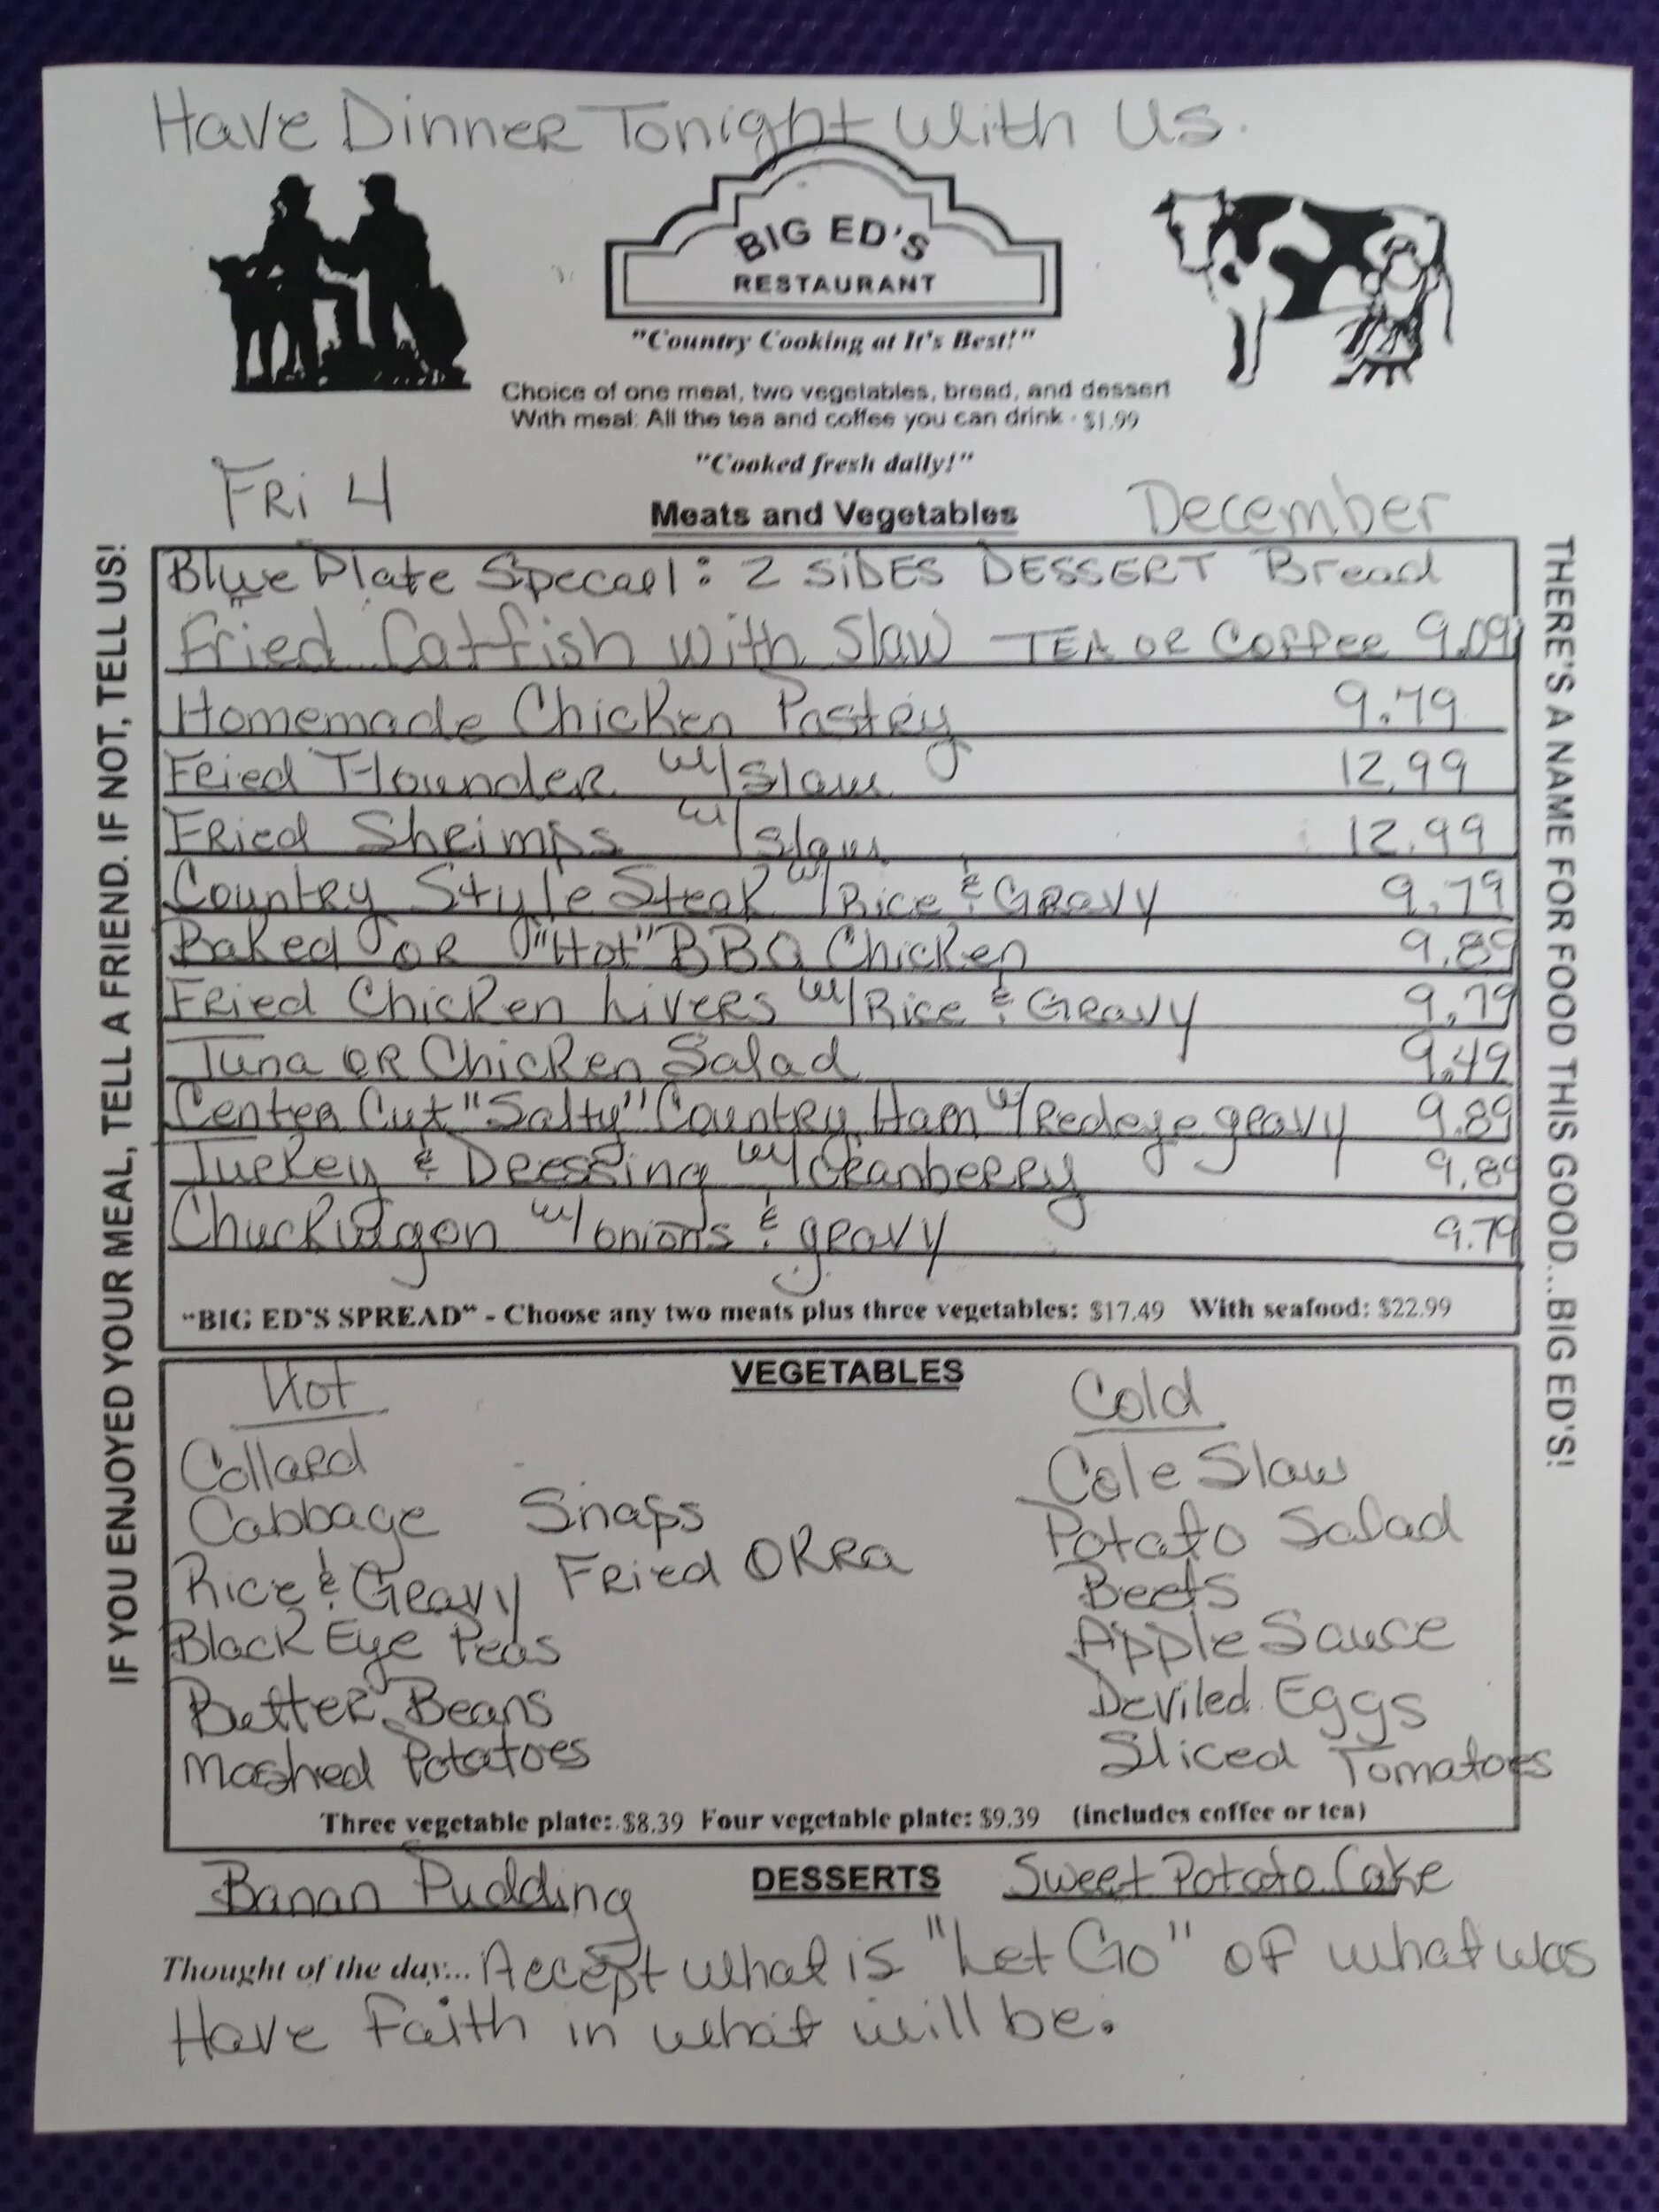 Have Dinner Tonight With Us.
BIG ED'S
RESTAURANT
"Country Cooking at It's Best!"
Choice of one meat, two vegetables, bread, and dessert
With meal: All the tea and coffee you can drink - $1.99
"Cooked fresh daily!"
Fri 4
Meats and Vegetables
December
IF YOU ENJOYED YOUR MEAL, TELL A FRIEND. IF NOT, TELL US!
Blue Plate Specael: 2 SiDES DESSERT Bread
Fried Catfish with Slaw TEA OR Coffee 9.09
Homemade Chicken Pastry 9.79
Fried Flounder w/slaw 12.99
Fried Shrimps w/slaw 12.99
Country Style Steak w/Rice & Gravy 9.79
Baked OR "Hot" BBQ Chicken 9.89
Fried Chicken Livers w/Rice & Gravy 9.79
Tuna OR Chicken Salad 9.49
Center Cut "Salty" Country Ham w/Redeye gravy 9.89
Turkey & Dressing w/cranberry 9.89
Chuckwagon w/onions & gravy 9.79
"BIG ED'S SPREAD" - Choose any two meats plus three vegetables: $17.49 With seafood: $22.99
THERE'S A NAME FOR FOOD THIS GOOD...BIG ED'S!
VEGETABLES
Hot
Collard
Cabbage
Rice & Gravy
Black Eye Peas
Butter Beans
Mashed Potatoes
Snaps
Fried OKRa
Cold
Cole Slaw
Potato Salad
Beets
Apple Sauce
Deviled Eggs
Sliced Tomatoes
Three vegetable plate: $8.39 Four vegetable plate: $9.39 (includes coffee or tea)
DESSERTS
Banan Pudding
Sweet Potato Cake
Thought of the day... Accept what is "Let Go" of what was
Have Faith in what will be.